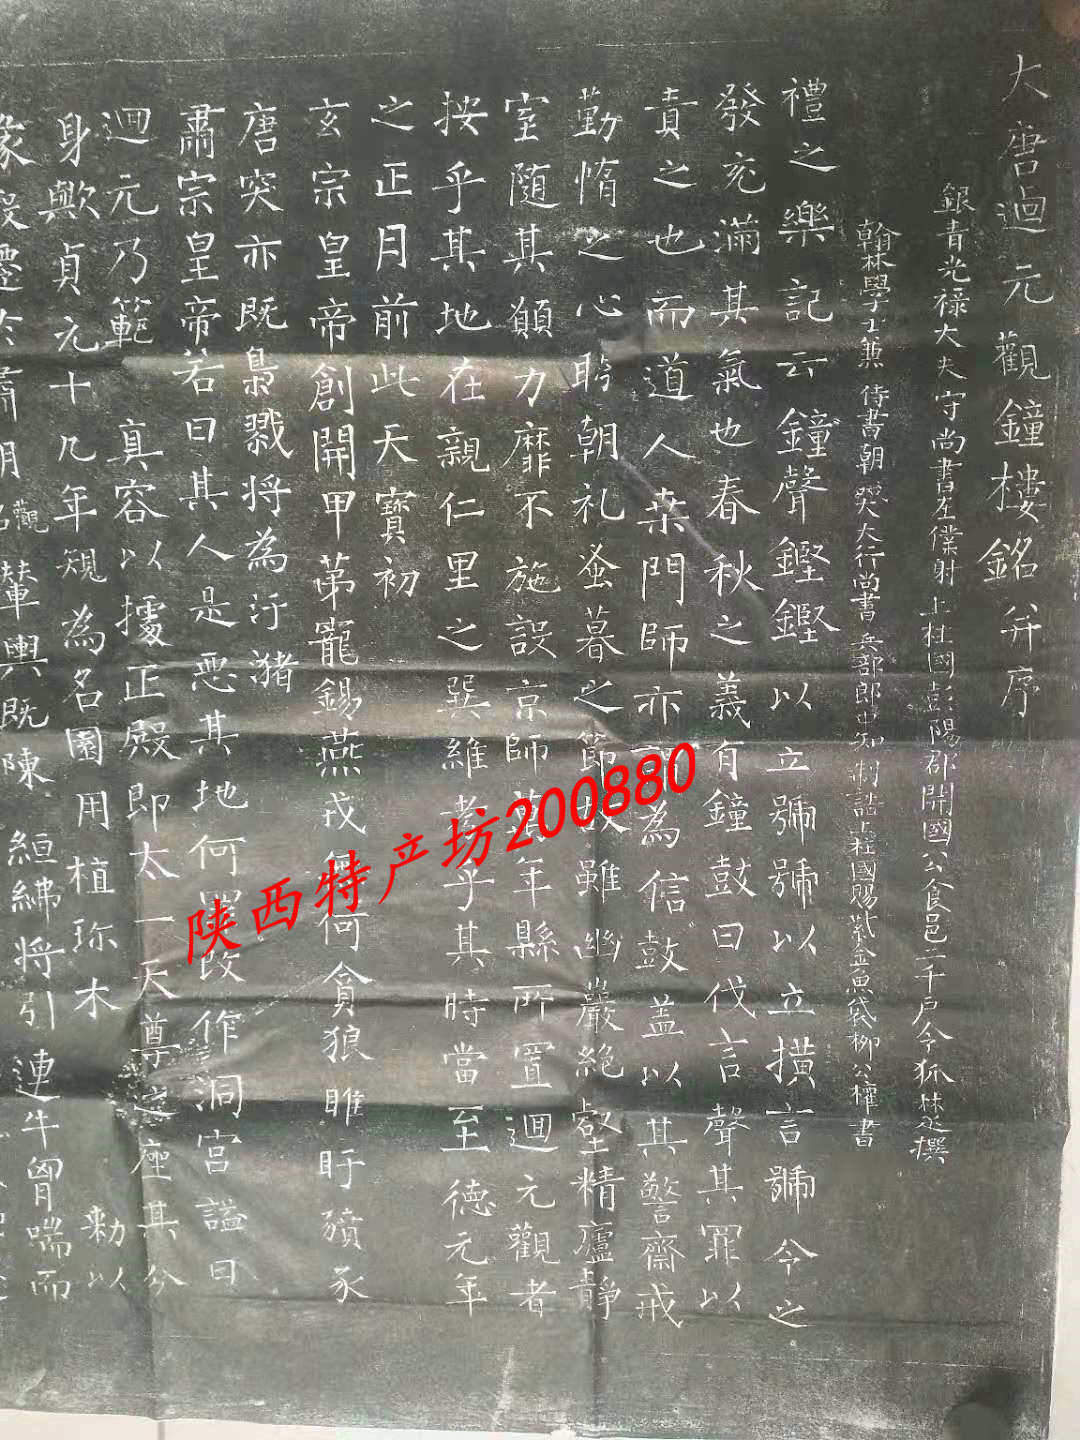 大唐迴元觀鐘樓銘并序
銀青光祿大夫守尚書左僕射上柱國彭陽郡開國公食邑二千戶令狐楚撰
翰林學士兼侍書朝議大夫行尚書兵部郎中知制誥上柱國賜紫金魚袋柳公權書
禮之樂記云鐘聲鏗鏗以立號號以立橫言號令之
發充滿其氣也春秋之義有鐘鼓曰伐言聲其罪以
責之也而道人桒門師亦謂為信鼓蓋以其警齋戒
勤惰之心時朝礼蚤暮之節故雖幽巖絕壑精廬靜
室隨其願力靡不施設京師萬年縣所置迴元觀者
按乎其地在親仁里之巽維考乎其時當至德元年
之正月前此天寶初
玄宗皇帝創開甲第寵錫燕戎無何貪狼睢盱豶豕
唐突亦既梟戮將為汙瀦
肅宗皇帝若曰其人是惡其地何罪改作洞宮謚曰
迴元乃範真容以據正殿即太一天尊之座其分
身歟貞元十九年規為名園用植珎木敕以
象設遷於肅明觀輦輿既陳
絙紼將引連牛胷喘而
陕西特产坊200880